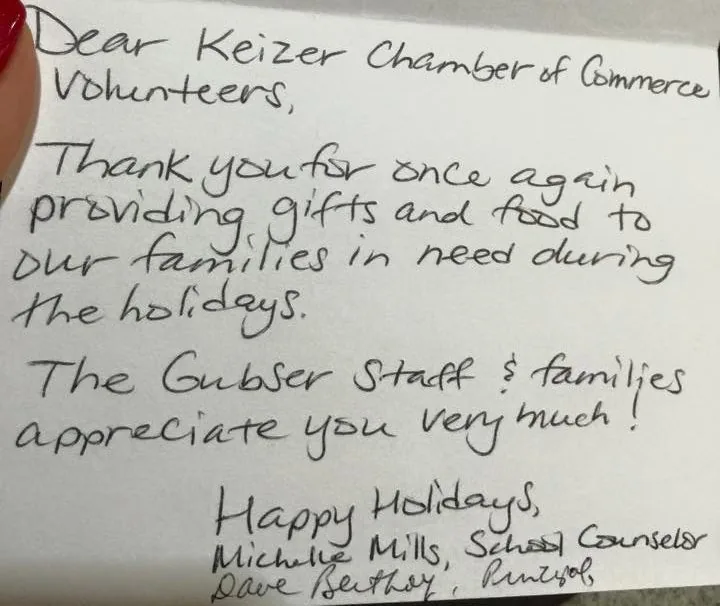 Dear Keizer Chamber of Commerce
Volunteers,
Thank you for once again
providing gifts and food to
our families in need during
the holidays.
The Gubser Staff & families
appreciate you very much!
Happy Holidays,
Michelle Mills, School Counselor
Dave Bertholf, Principal